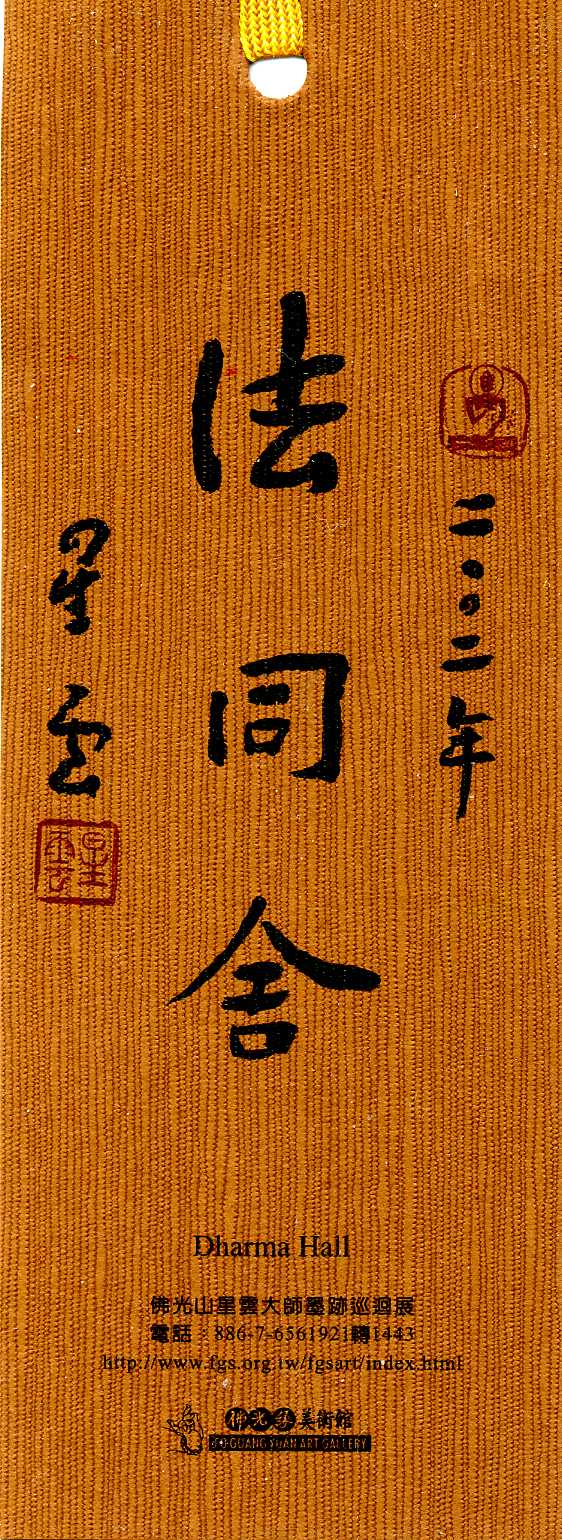 二〇〇二年
法同舍
星云
星雲
Dharma Hall
佛光山星雲大師墨跡巡迴展
電話：886-7-6561921轉1443
http://www.fgs.org.tw/fgsart/index.html
佛光緣美術館
FO GUANG YUAN ART GALLERY